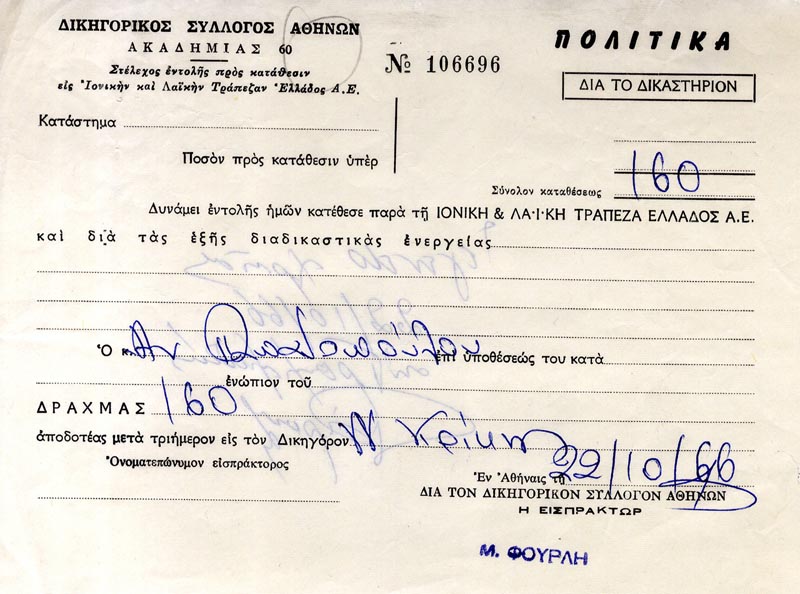 ΔΙΚΗΓΟΡΙΚΟΣ ΣΥΛΛΟΓΟΣ ΑΘΗΝΩΝ
ΑΚΑΔΗΜΙΑΣ 60
Στέλεχος ἐντολῆς πρὸς κατάθεσιν
εἰς Ἰονικὴν καὶ Λαϊκὴν Τράπεζαν Ἑλλάδος Α.Ε.
№ 106696
ΠΟΛΙΤΙΚΑ
ΔΙΑ ΤΟ ΔΙΚΑΣΤΗΡΙΟΝ
Κατάστημα
Ποσὸν πρὸς κατάθεσιν ὑπὲρ
Σύνολον καταθέσεως 160
Δυνάμει ἐντολῆς ἡμῶν κατέθεσε παρὰ τῇ ΙΟΝΙΚΗ & ΛΑ·Ι·ΚΗ ΤΡΑΠΕΖΑ ΕΛΛΑΔΟΣ Α.Ε.
καὶ διὰ τὰς ἑξῆς διαδικαστικὰς ἐνεργείας
Ὁ κ. Αν ἐπὶ ὑποθέσεώς του κατὰ
ἐνώπιον τοῦ
ΔΡΑΧΜΑΣ 160
ἀποδοτέας μετὰ τριήμερον εἰς τὸν Δικηγόρον
Ὀνοματεπώνυμον εἰσπράκτορος
Ἐν Ἀθήναις τῇ 22/10/66
ΔΙΑ ΤΟΝ ΔΙΚΗΓΟΡΙΚΟΝ ΣΥΛΛΟΓΟΝ ΑΘΗΝΩΝ
Η ΕΙΣΠΡΑΚΤΩΡ
Μ. ΦΟΥΡΛΗ